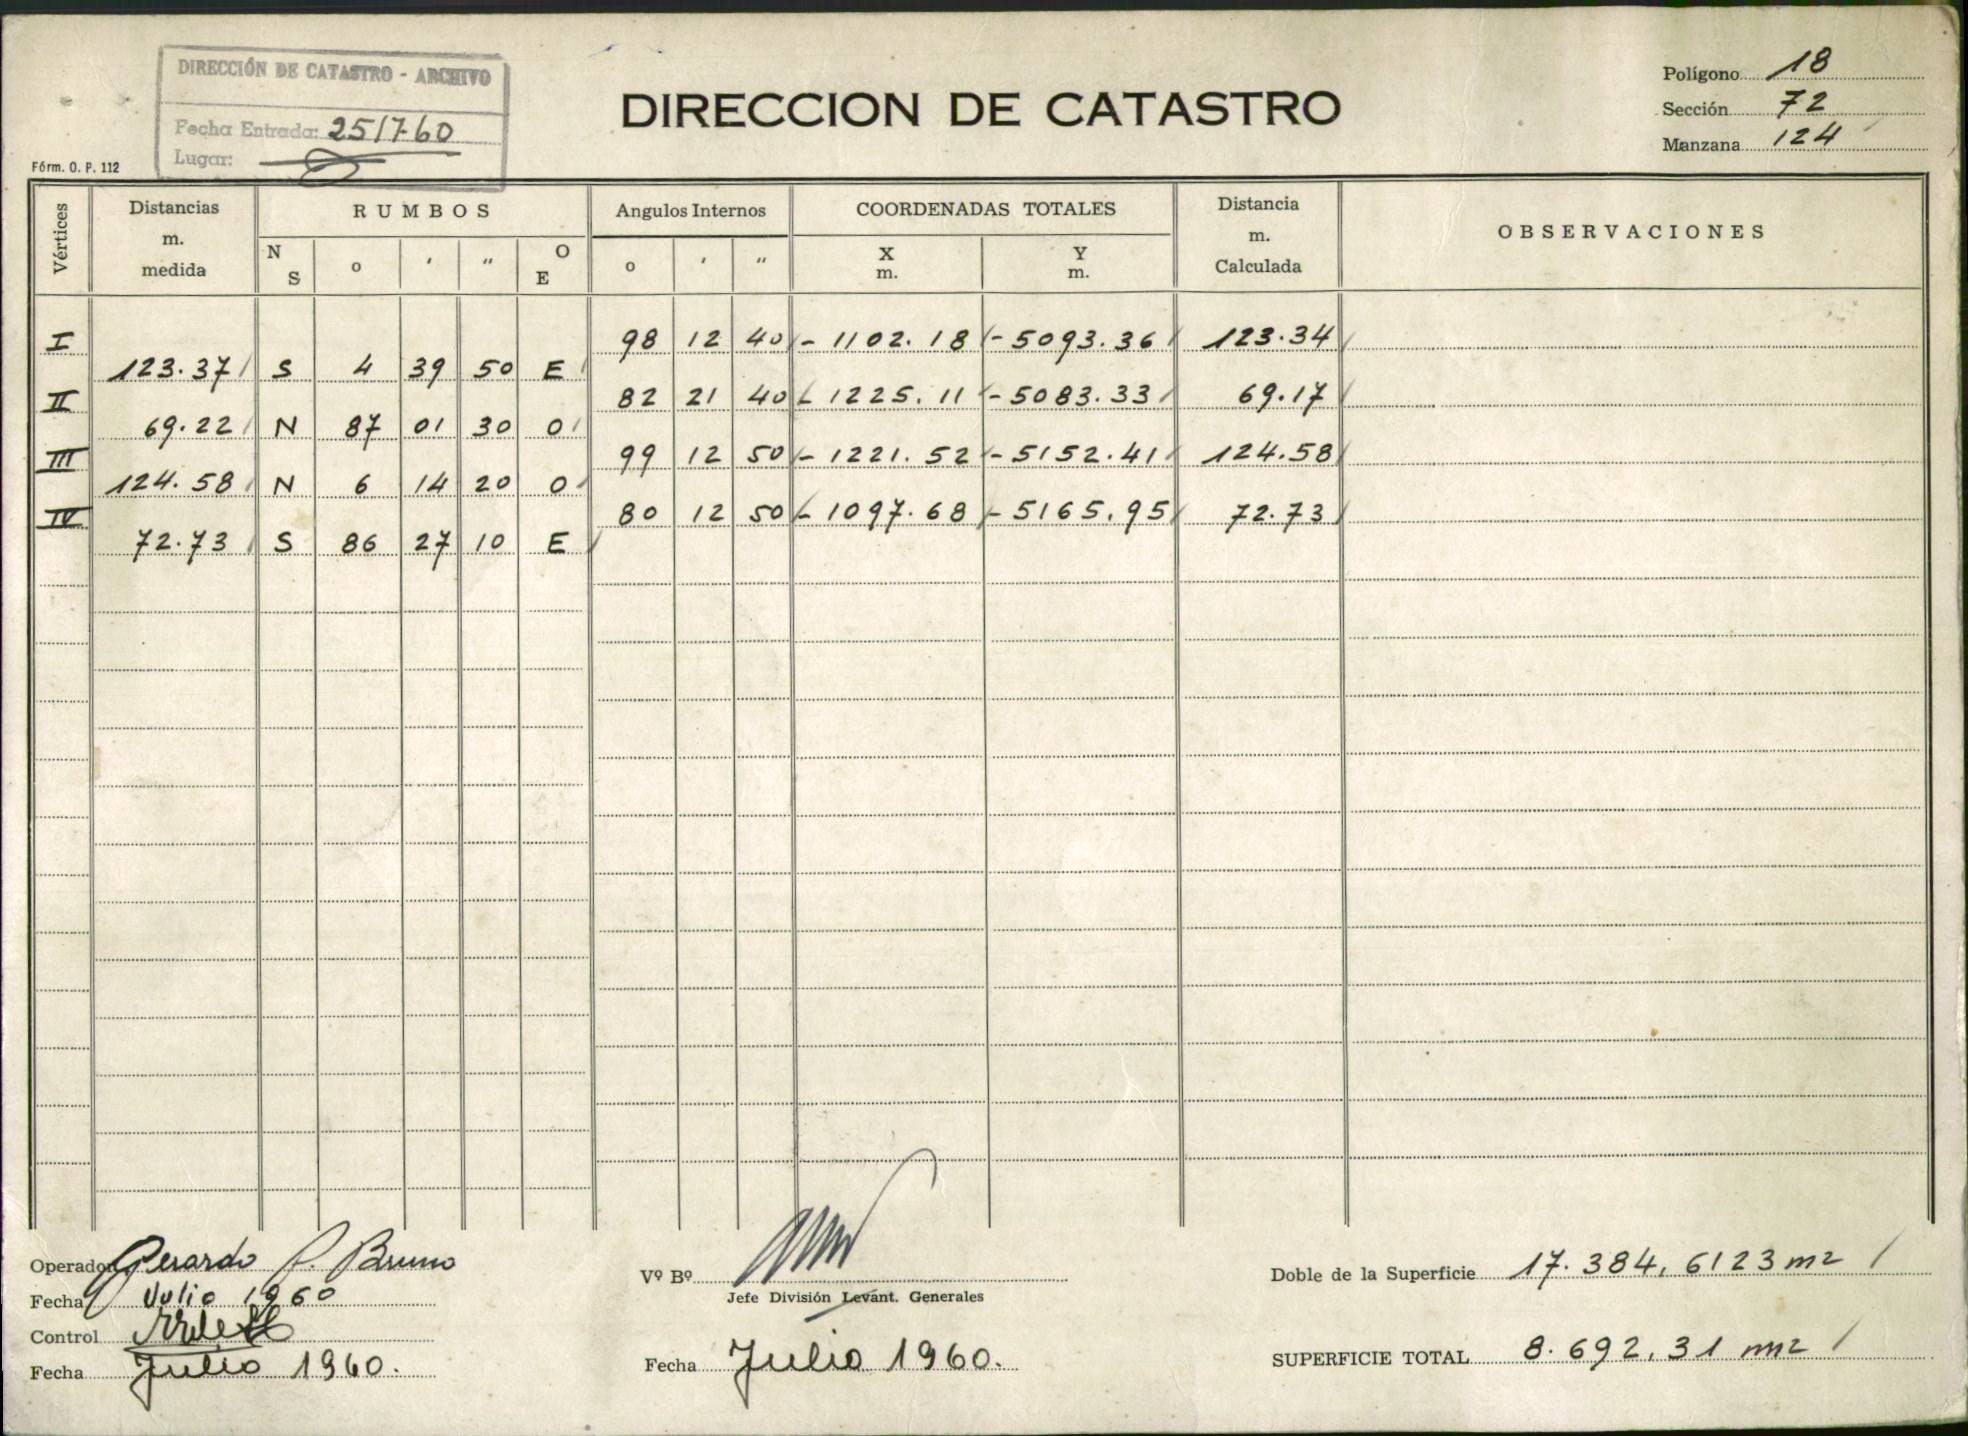 DIRECCIÓN DE CATASTRO - ARCHIVO
Fecha Entrada: 25/7-60
Lugar:
DIRECCION DE CATASTRO
Polígono 18
Sección 72
Manzana 124
Fórm. O. P. 112
Vértices Distancias m. medida RUMBOS Angulos Internos COORDENADAS TOTALES Distancia m. Calculada OBSERVACIONES
N S o ' " O E o ' " X m. Y m.
I 98 12 40 - 1102.18 - 5093.36 123.34
123.37 S 4 39 50 E
II 82 21 40 - 1225.11 - 5083.33 69.17
69.22 N 87 01 30 O
III 99 12 50 - 1221.52 - 5152.41 124.58
124.58 N 6 14 20 O
IV 80 12 50 - 1097.68 - 5165.95 72.73
72.73 S 86 27 10 E
Operador Gerardo P. Bruno
Fecha Julio 1960
Control
Fecha Julio 1960.
Vº Bº
Jefe División Levant. Generales
Fecha Julio 1960.
Doble de la Superficie 17.384,6123 m2
SUPERFICIE TOTAL 8.692,31 m2